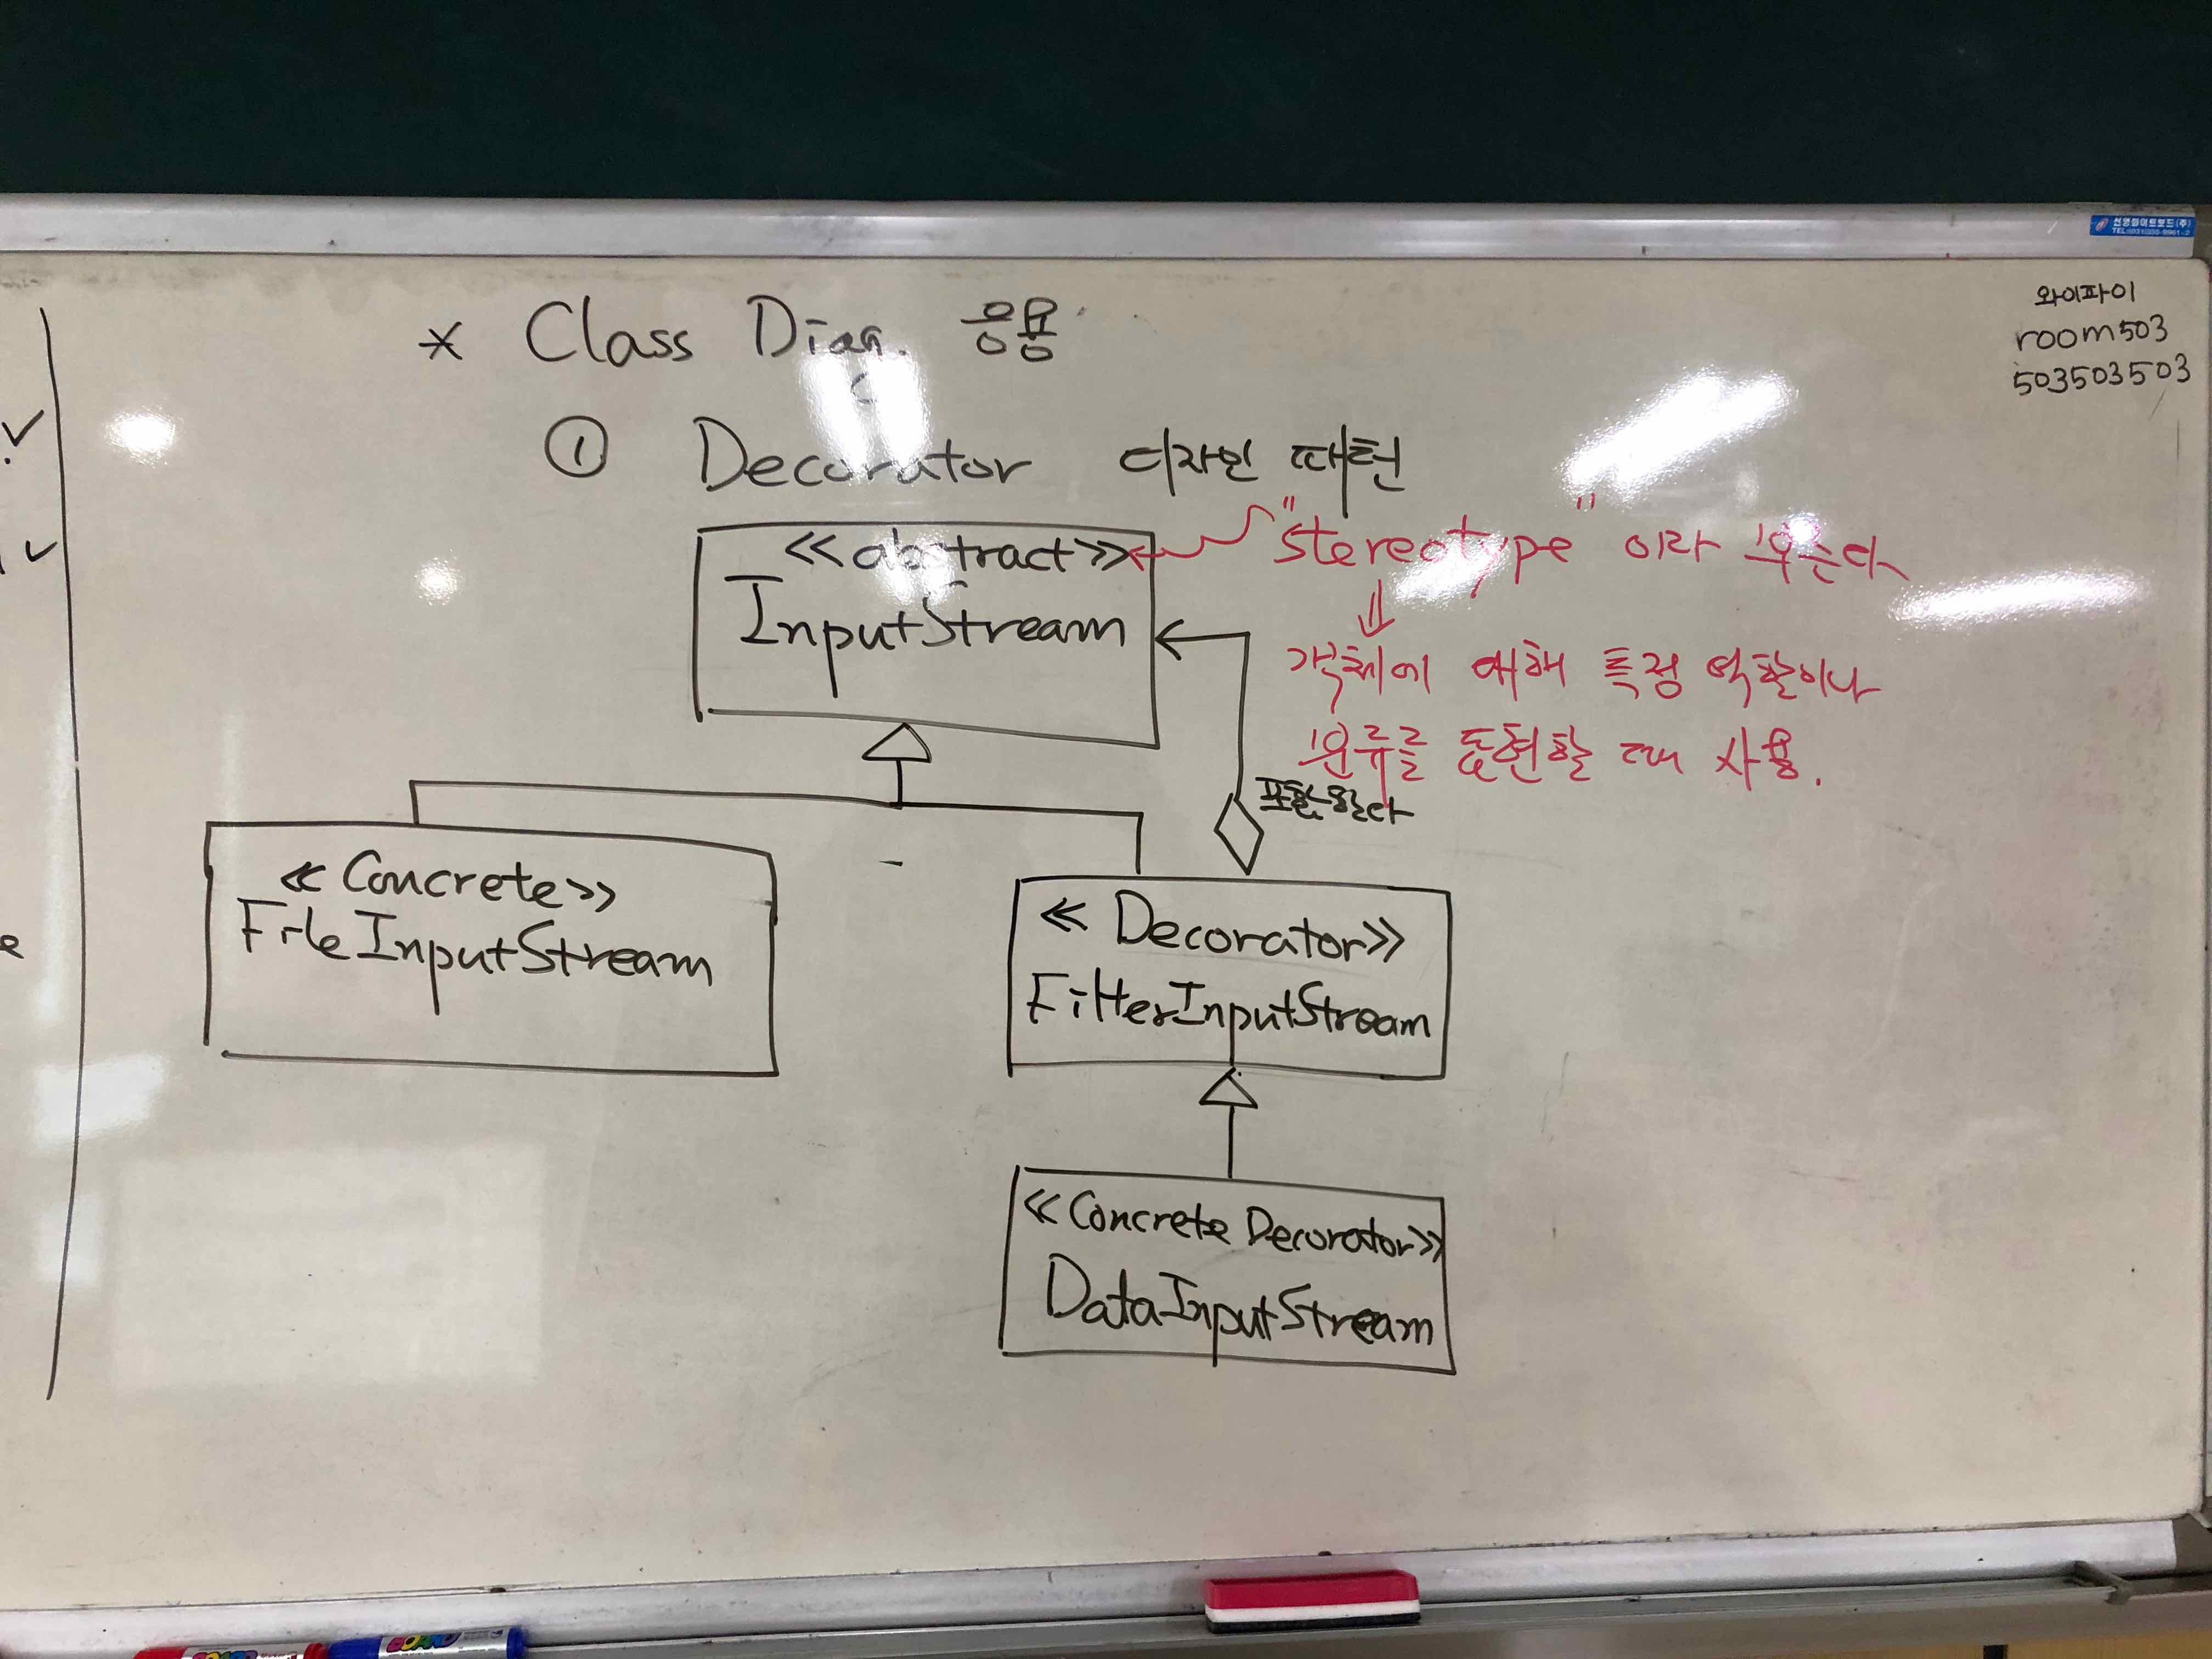 선영화이트보드(주)
와이파이
room503
503503503
* Class Diag. 응용
① Decorator 디자인 패턴
<<abstract>>
InputStream
"stereotype" 이라 부른다
객체에 대해 특정 역할이나
분류를 표현할 때 사용.
포함한다
<<Concrete>>
FileInputStream
<<Decorator>>
FilterInputStream
<<Concrete Decorator>>
DataInputStream
BOARD
BOARD